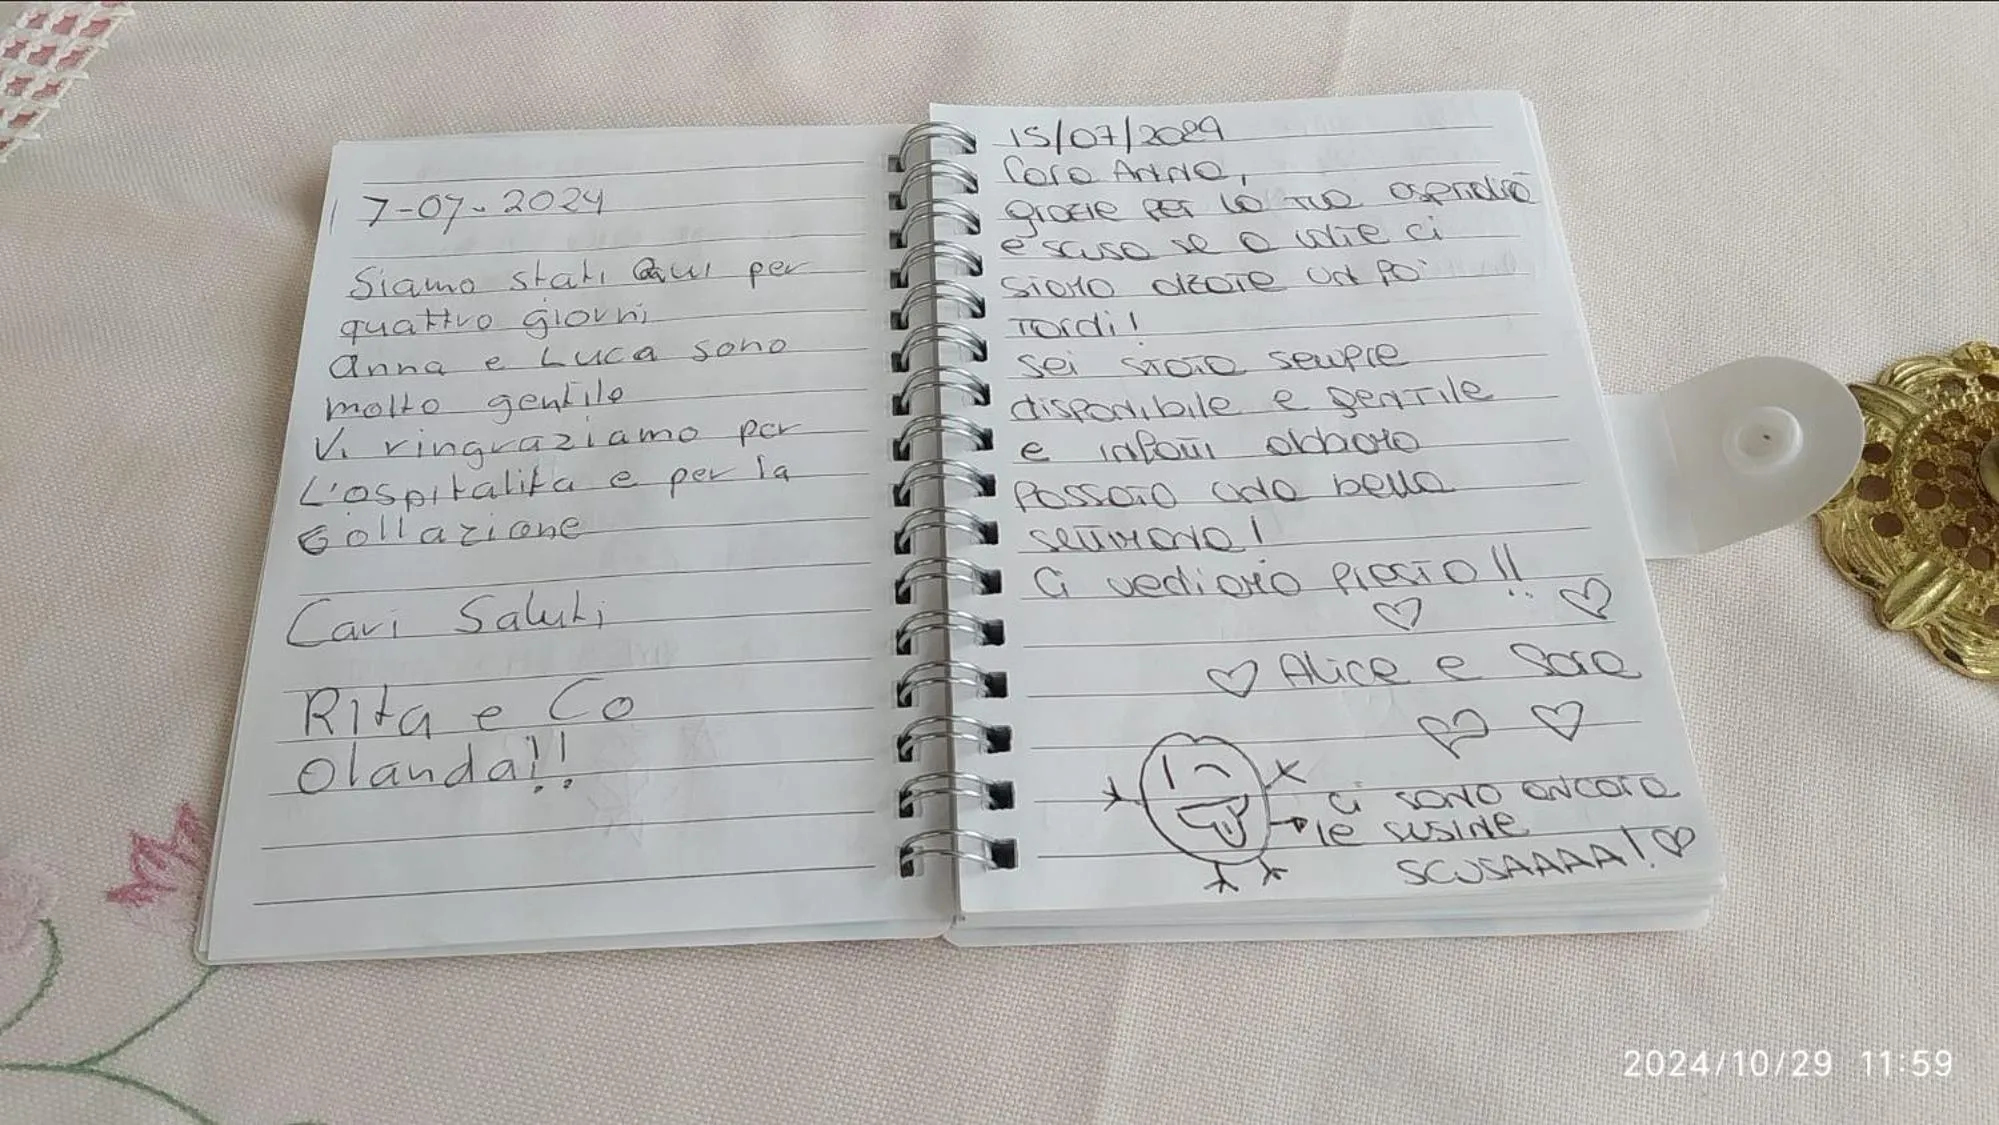 7-07-2024
Siamo stati Qui per
quattro giorni
Anna e Luca sono
molto gentile
Vi ringraziamo per
L'ospitalita e per la
Collazione
Cari Saluti
Rita e Co
Olanda!!
15/07/2024
Cara Anna,
grazie per la tua ospitalità
e scusa se a volte ci
siamo alzate un po'
tardi!
sei stata sempre
disponibile e gentile
e infatti abbiamo
passato una bella
settimana!
Ci vediamo presto!!
♡ ♡
♡ Alice e Sara
♡ ♡
Ci sono ancora
le susine
SCUSAAAA! ♡
2024/10/29 11:59